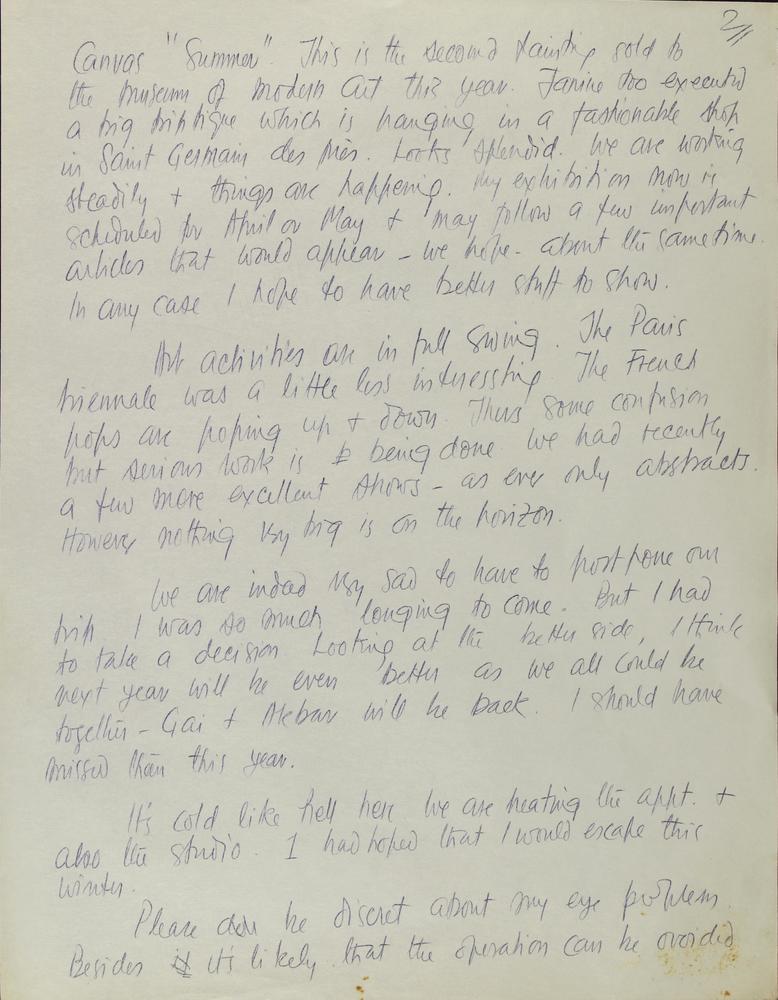 2/
Canvas "Summer". This is the second painting sold to
the museum of modern Art this year. Janine too executed
a big triptique which is hanging in a fashionable shop
in Saint Germain des Près. Looks splendid. We are working
steadily + things are happening. My exhibition now is
scheduled for April or May + may follow a few important
articles that would appear - we hope - about the same time.
In any case I hope to have better stuff to show.
Art activities are in full swing. The Paris
biennale was a little less interessting. The French
pops are poping up + down. Thus some confusion
but serious work is being done. We had recently
a few more excellent shows - as ever only abstracts.
However nothing very big is on the horizon.
We are indeed very sad to have to postpone our
trip. I was so much longing to come. But I had
to take a decision. Looking at the better side, I think
next year will be even better as we all could be
together - Gai + Akbar will be back. I should have
missed them this year.
It's cold like hell here. We are heating the appt. +
also the studio. I had hoped that I would escape this
winter.
Please be discret about my eye problem.
Besides it's likely that the operation can be avoided